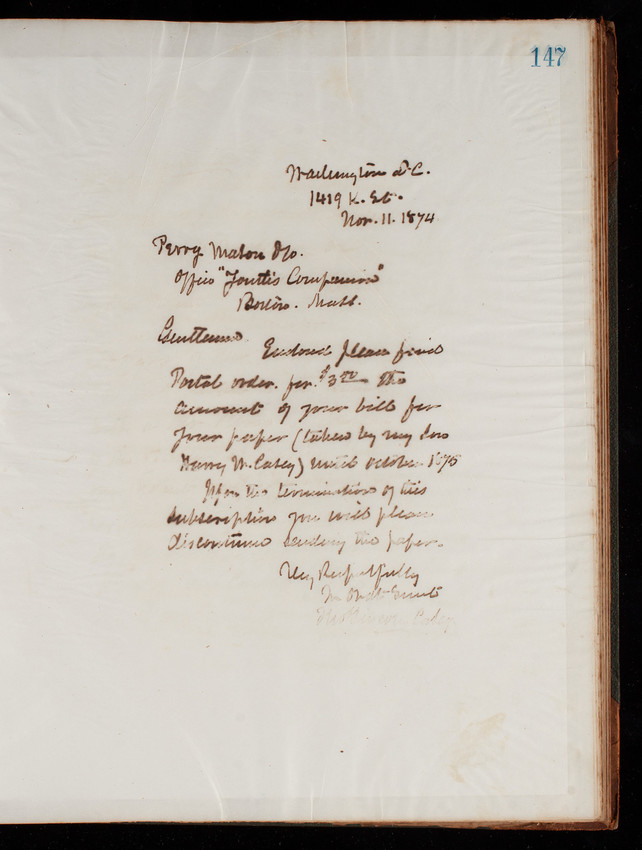 147
Washington D.C.
1419 K. St.
Nov. 11. 1874
Perry Mason & Co.
Office "Youth's Companion"
Boston. Mass.
Gentlemen
Enclosed please find
Postal order. for. $3.00 the
amount of your bill for
your paper (taken by my son
Harry W. Casey) until October 1875
Upon the termination of this
subscription you will please
discontinue sending the paper.
Very Respectfully
Yr Obdt Servt
Casey